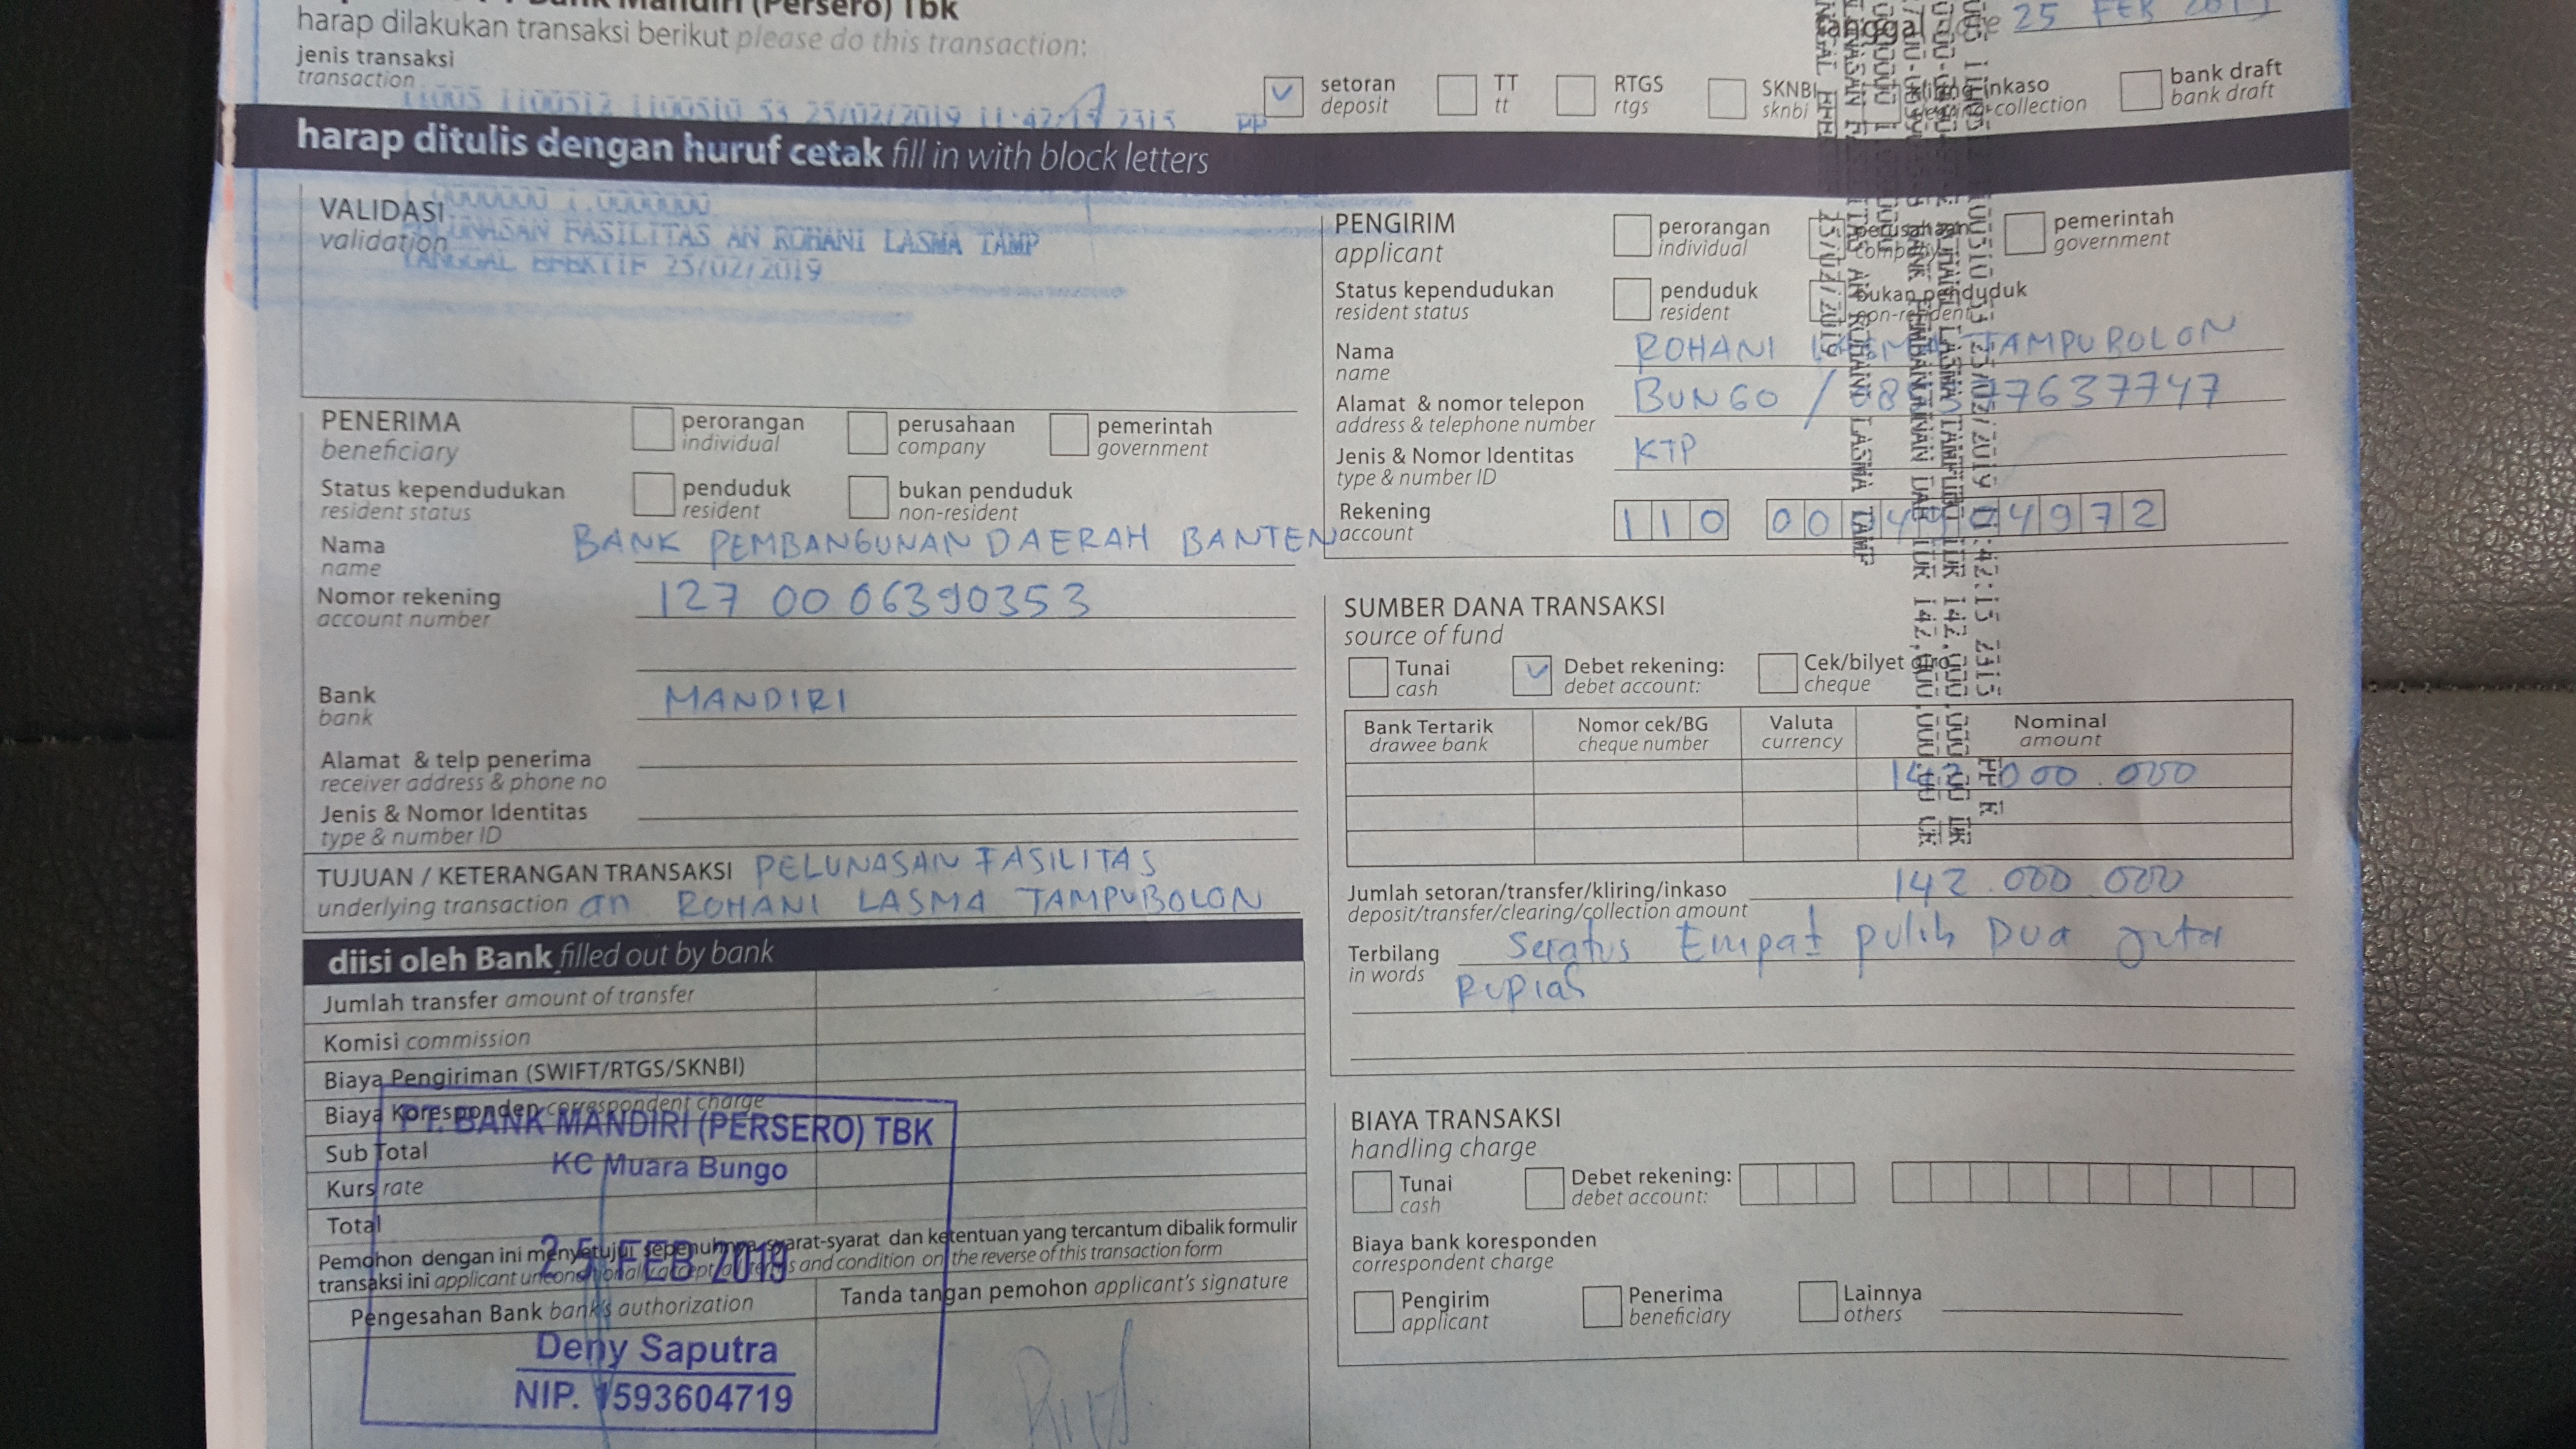 Bank Mandiri (Persero) Tbk
harap dilakukan transaksi berikut please do this transaction:
tanggal 25 FEB 2019
jenis transaksi
transaction
setoran
deposit
TT
tt
RTGS
rtgs
SKNBI
sknbi
inkaso
collection
bank draft
bank draft
11005 1100512 1100510 53 25/02/2019 11:42:15 2315 PP
harap ditulis dengan huruf cetak fill in with block letters
VALIDASI
validation
FASILITAS AN ROHANI LASMA TAMP
TANGGAL EFEKTIF 25/02/2019
PENERIMA
beneficiary
perorangan
individual
perusahaan
company
pemerintah
government
Status kependudukan
resident status
penduduk
resident
bukan penduduk
non-resident
Nama
name
BANK PEMBANGUNAN DAERAH BANTEN
Nomor rekening
account number
127 00 06390353
Bank
bank
MANDIRI
Alamat & telp penerima
receiver address & phone no
Jenis & Nomor Identitas
type & number ID
TUJUAN / KETERANGAN TRANSAKSI PELUNASAN FASILITAS
underlying transaction an ROHANI LASMA TAMPUBOLON
diisi oleh Bank filled out by bank
Jumlah transfer amount of transfer
Komisi commission
Biaya Pengiriman (SWIFT/RTGS/SKNBI)
Biaya Koresponden correspondent charge
Sub Total
Kurs rate
Total
Pemohon dengan ini menyetujui sepenuhnya syarat-syarat dan ketentuan yang tercantum dibalik formulir
transaksi ini applicant unconditionally accept all terms and condition on the reverse of this transaction form
Pengesahan Bank bank's authorization
Tanda tangan pemohon applicant's signature
PT. BANK MANDIRI (PERSERO) TBK
KC Muara Bungo
25 FEB 2019
Deny Saputra
NIP. 1593604719
PENGIRIM
applicant
perorangan
individual
perusahaan
company
pemerintah
government
Status kependudukan
resident status
penduduk
resident
bukan penduduk
non-resident
Nama
name
ROHANI LASMA TAMPUBOLON
Alamat & nomor telepon
address & telephone number
BUNGO /
77637747
Jenis & Nomor Identitas
type & number ID
KTP
Rekening
account
110
4972
SUMBER DANA TRANSAKSI
source of fund
Tunai
cash
Debet rekening:
debet account:
Cek/bilyet giro
cheque
Bank Tertarik
drawee bank
Nomor cek/BG
cheque number
Valuta
currency
Nominal
amount
142 000.000
Jumlah setoran/transfer/kliring/inkaso
deposit/transfer/clearing/collection amount
142.000.000
Terbilang
in words
Seratus Empat puluh Dua Juta
Rupiah
BIAYA TRANSAKSI
handling charge
Tunai
cash
Debet rekening:
debet account:
Biaya bank koresponden
correspondent charge
Pengirim
applicant
Penerima
beneficiary
Lainnya
others